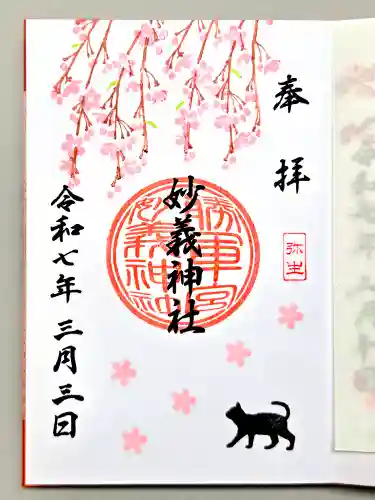 奉拝
弥生
妙義神社
勝軍宮
妙義神社
令和七年三月三日